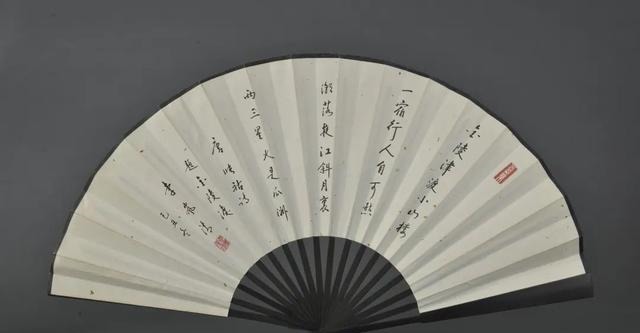 金陵津渡小山楼
一宿行人自可愁
潮落夜江斜月里
两三星火是瓜洲
唐张祜诗
题金陵渡